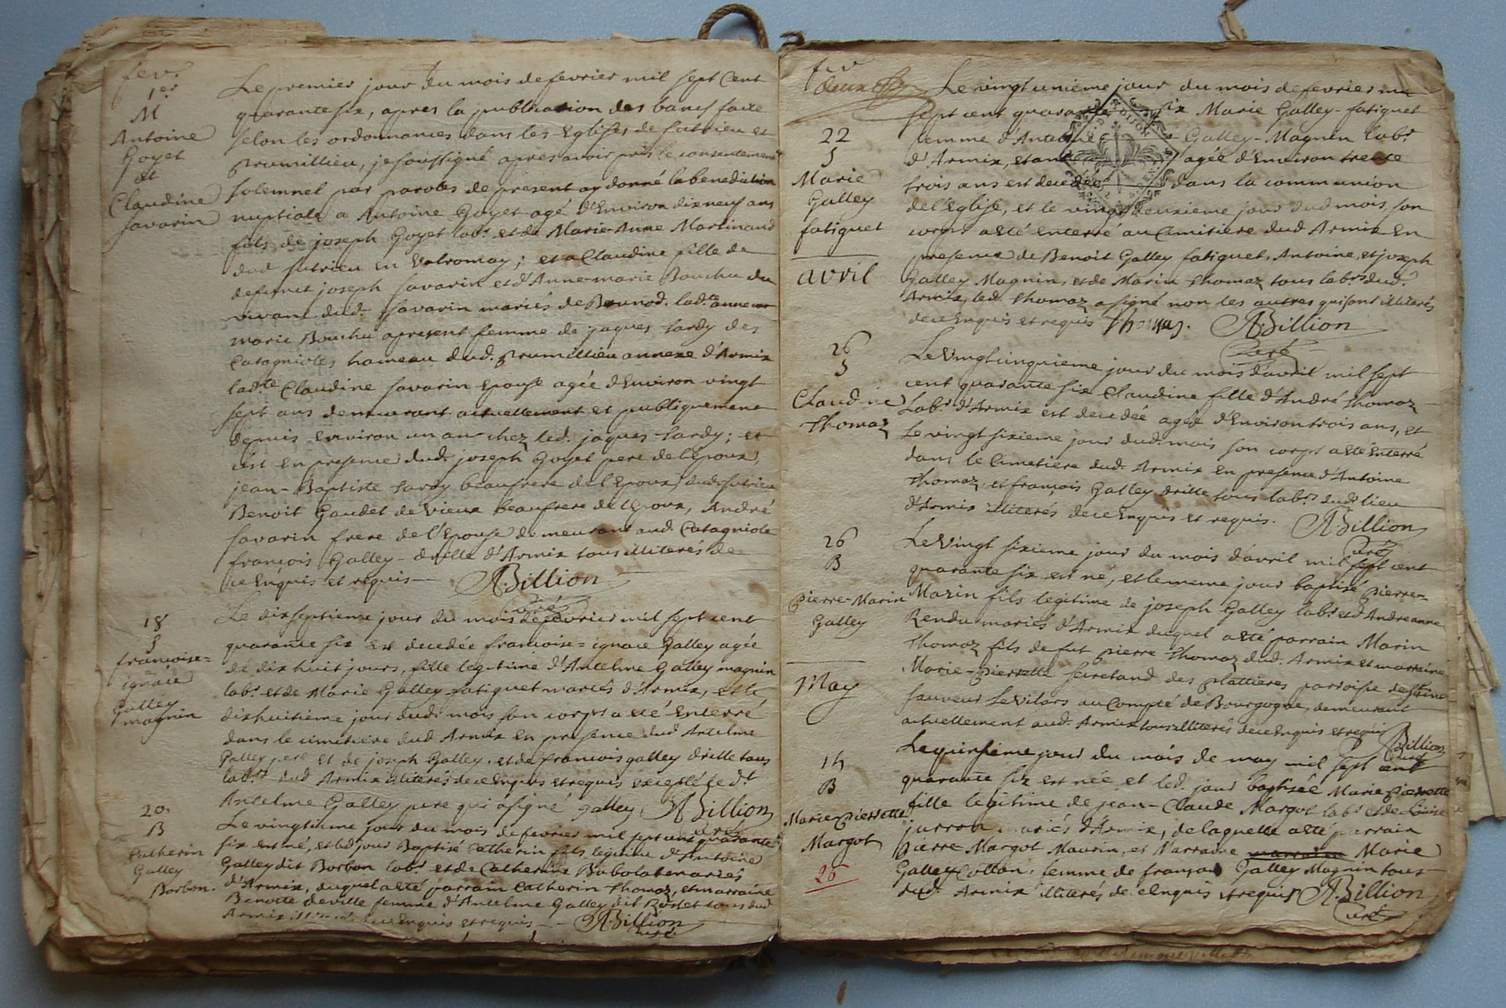 fev.r
1er
M
Antoine
Goyet
et
Claudine
Savarin
Le premier jour du mois de fevrier mil sept cent
quarante six, apres la publication des bancs faite
selon les ordonnances dans les Eglises de Sutrieu et
prumillieu, je soussigné apres avoir pris le consentement
solemnel par paroles de present ay donné la benediction
nuptiale a Antoine Goyet agé d'Environ dix neuf ans
fils de joseph Goyet lab.r et de Marie Anne Martinaud
dud Sutrieu en valromay; et a Claudine fille de
deffunct joseph Savarin et d'Anne marie Bouchu du
vivant dud. Savarin mariés de lad.te anne
marie Bouchu apresent femme de jaques tardy des
Catagnioles hameau dud. prumillieu annexe d'Armix
lad.te Claudine Savarin Epouse agée d'Environ vingt
sept ans demeurant actuellement et publiquement
depuis environ un an chez led. jaques tardy; et
c'est en presence dud. joseph Goyet pere de l'epoux,
jean-Baptiste tardy beaufrere de l'Epoux dud Sutrieu
Benoit Gaudet de vieux beaufrere de l'Epoux, André
Savarin frere de l'Epouse demeurant aud Catagniole
françois Galley-drille d'Armix tous illiterés de
ce Enquis et requis ABillion
curé
18
S
françoise=
ignace
Galley
magnin
Le dix septieme jour du mois de fevrier mil sept cent
quarante six est decedée francoise=ignace Galley agée
de dix huit jours, fille legitime d'Antelme Galley magnin
lab.r et de Marie Galley fatiquet mariés d'Armix, et le
dixhuitieme jour dud. mois son corps a eté Enterré
dans le cimetiere dud Armix en presence dud Antelme
Galley pere et de joseph Galley, et de francois galley drille tous
lab.rs dud Armix illiterés de ce Enquis et requis excepté led.t
Antelme Galley pere qui a signé galley ABillion
curé
20
B
Catherin
Galley
Borbon.
Le vingtieme jour du mois de fevrier mil sept cent quarante
six est né, et led jour Baptisé Catherin fils legitime d'Antoine
Galley dit Borbon lab.r et de Catherine mariés
d'Armix, duquel a eté parrain Catherin Thomaz, et marraine
Benoite deville femme d'Antelme Galley dit Rostet tous dud
Armix illiterés de ce Enquis et requis ABillion
curé
fev
deux
22
S
Marie
Galley
fatiquet
Le vingt unieme jour du mois de fevrier mil
sept cent quarante six Marie Galley-fatiquet
femme d'Antelme Galley-Magnin lab.r
d'Armix, etant agée d'Environ trente
trois ans est decedée dans la communion
de l'Eglise, et le vingt deuxieme jour dud mois son
corps a eté enterré au Cimitiere dud Armix En
presence de Benoit Galley fatiquet, Antoine, et joseph
Galley Magnin, et de Marin Thomaz tous lab.rs dud.
Armix, led. Thomaz a signé non les autres qui sont illiterés
de ce Enquis et requis Thomaz. ABillion
curé
avril
26
S
Claudine
Thomaz
Le vingt cinquieme jour du mois d'avril mil sept
cent quarante six Claudine fille d'André Thomaz
Lab.r d'Armix est decedée agée d'Environ trois ans, et
Le vingt sixieme jour dud. mois son corps a eté Enterré
dans le Cimetiere dud. Armix en presence d'Antoine
Thomaz et françois Galley drille tous lab.rs dud lieu
d'Armix illiterés de ce Enquis et requis. ABillion
curé
26
B
Pierre-Marin
Galley
Le vingt sixieme jour du mois d'avril mil sept cent
quarante six est né, et le meme jour baptisé Pierre=
Marin fils legitime de joseph Galley lab.r et d'Andreanne
Rendu mariés d'Armix duquel a eté parrain Marin
Thomaz fils de fut Pierre Thomaz dud. Armix et marraine
Marie-pierrette des plattieres paroisse de
sauveur Le Vilars au Compté de Bourgogne, demeurant
actuellement aud. Armix tous illiterés de ce Enquis et requis
ABillion
curé
May
15
B
Marie-pierrette
Margot
26
Le quinsieme jour du mois de may mil sept cent
quarante six est née et led. jour baptisée Marie Pierrette
fille legitime de jean-Claude Margot lab.r et de Louise
mariés d'Armix, de laquelle a eté parrain
Pierre Margot Maurin, et Marraine Marie
Galley Cotton, femme de françois Galley Magnin tous
dud. Armix illiterés de ce Enquis et requis ABillion
curé